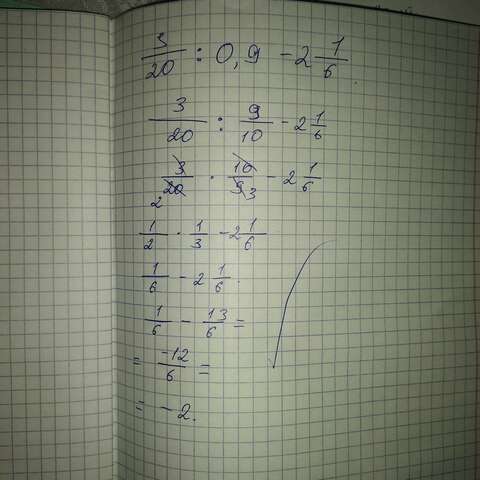 3/20 : 0,9 - 2 1/6
3/20 : 9/10 - 2 1/6
2 3/20 · 10/9 3 - 2 1/6
1/2 · 1/3 - 2 1/6
1/6 - 2 1/6.
1/6 - 13/6 =
= -12/6 =
= -2.